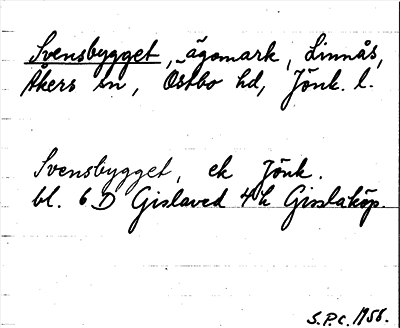 Svensbygget, ägomark, Linnås,
Åkers sn, Östbo hd, Jönk. l.
Svensbygget, ek Jönk.
bl. 6 D Gislaved 4 h Gisslaköp.
S.P.C. 1956.